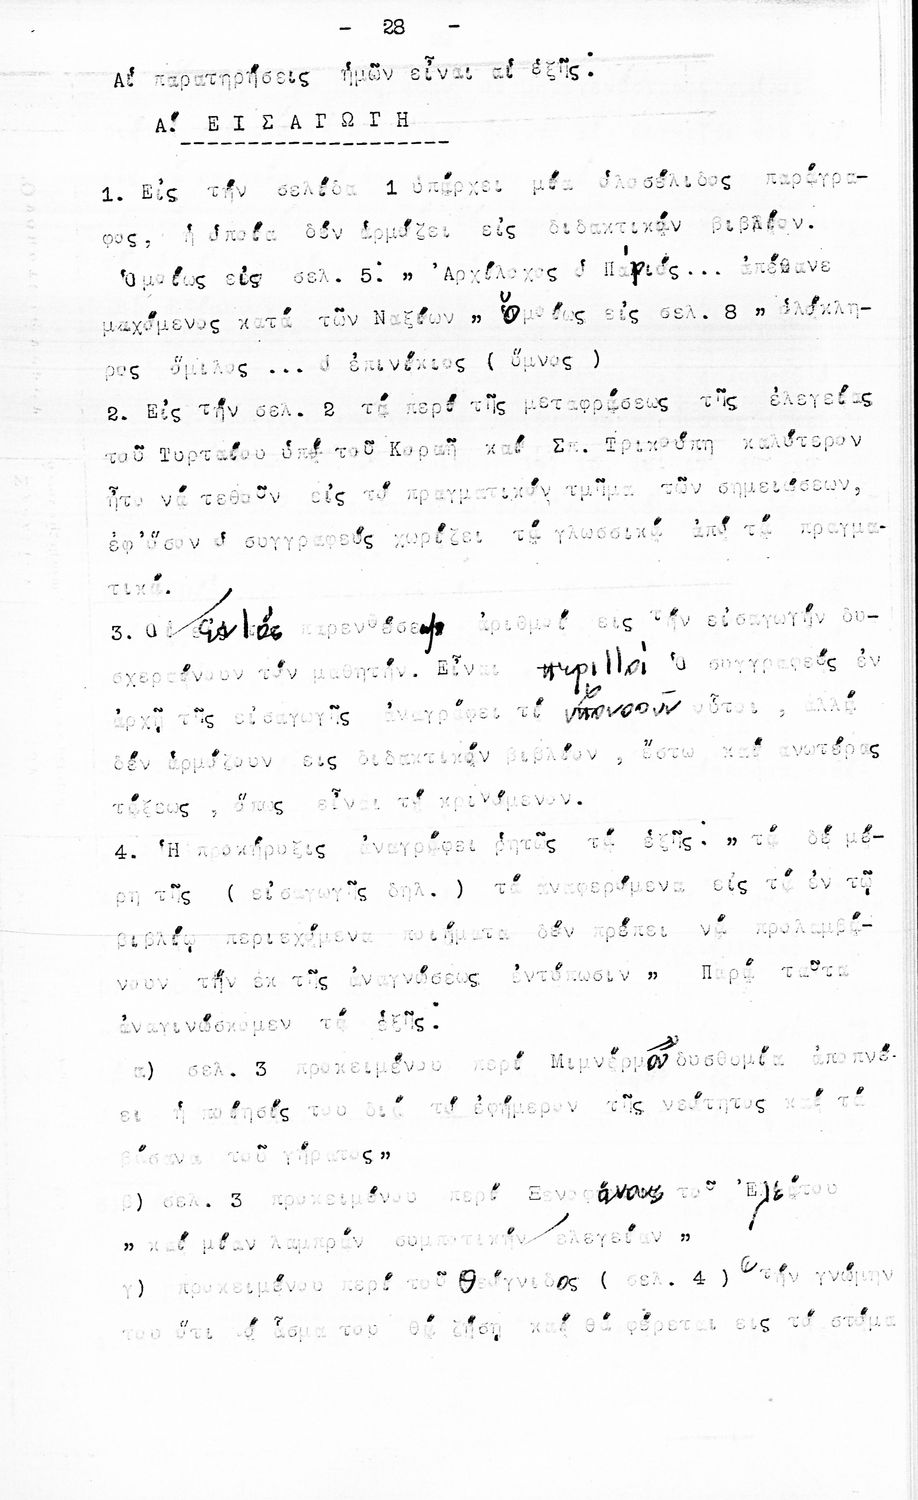 - 28 -
Αἱ παρατηρήσεις ἡμῶν εἶναι αἱ ἑξῆς:
Α! ΕΙΣΑΓΩΓΗ
1. Εἰς τήν σελίδα 1 ὑπάρχει μία ὁλοσέλιδος παράγρα-
φος, ἡ ὁποία δέν ἁρμόζει εἰς διδακτικόν βιβλίον.
Ὁμοίως εἰς σελ. 5: „ Ἀρχίλοχος ὁ Πάριός... ἀπέθανε
μαχόμενος κατά τῶν Ναξίων „ Ὁμοίως εἰς σελ. 8 „ ὁλόκλη-
ρος ὅμιλος ... ὁ ἐπινίκιος ( ὕμνος )
2. Εἰς τήν σελ. 2 τά περί τῆς μεταφράσεως τῆς ἐλεγείας
τοῦ Τυρταίου ὑπό τοῦ Κοραῆ καί Σπ. Τρικούπη καλύτερον
ἦτο νά τεθοῦν εἰς τό πραγματικόν τμῆμα τῶν σημειώσεων,
ἐφ'ὅσον ὁ συγγραφεύς χωρίζει τά γλωσσικά ἀπό τά πραγμα-
τικά.
3. Οἱ ἐντός παρενθέσεων ἀριθμοί εις τήν εἰσαγωγήν δυ-
σχεραίνουν τόν μαθητήν. Εἶναι περιττοί Ὁ συγγραφεύς ἐν
ἀρχῇ τῆς εἰσαγωγῆς ἀναγράφει τί ὑπονοοῦν οὗτοι , ἀλλά
δέν ἁρμόζουν εις διδακτικόν βιβλίον , ἔστω καί ανωτέρας
τάξεως , ὅπως εἶναι τό κρινόμενον.
4. Ἡ προκήρυξις ἀναγράφει ῥητῶς τά ἑξῆς: „ τά δέ μέ-
ρη τῆς ( εἰσαγωγῆς δηλ. ) τά αναφερόμενα εἰς τά ἐν τῷ
βιβλίῳ περιεχόμενα ποιήματα δέν πρέπει νά προλαμβά-
νουν τήν ἐκ τῆς ἀναγνώσεως ἐντύπωσιν „ Παρά ταῦτα
ἀναγινώσκομεν τά ἑξῆς:
α) σελ. 3 προκειμένου περί Μιμνέρμου δυσθυμία ἀποπνέ-
ει ἡ ποίησίς του διά τό ἐφήμερον τῆς νεότητος καί τά
βάσανα τοῦ γήρατος„
β) σελ. 3 προκειμένου περί Ξενοφάνους τοῦ Ἐλεάτου
„ καί μίαν λαμπράν συμποτικήν ελεγείαν „
γ) προκειμένου περί τοῦ Θεόγνιδος ( σελ. 4 ) „ τήν γνώμην
του ὅτι τό ᾆσμα του θά ζήσῃ καί θά φέρεται εις τό στόμα